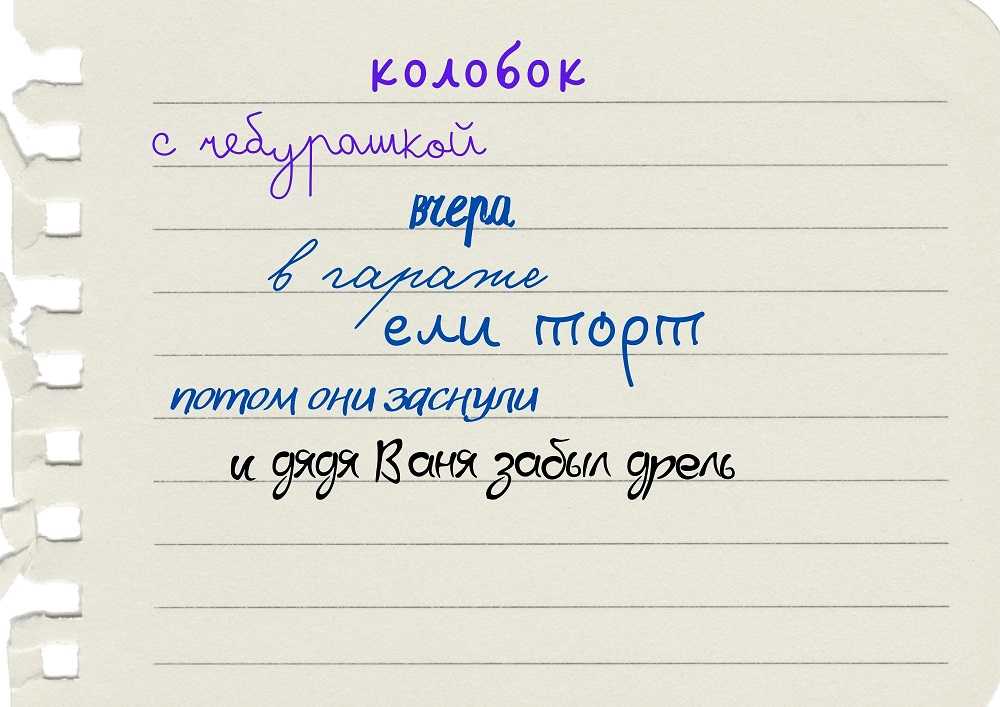 колобок
с чебурашкой
вчера
в гараже
ели торт
потом они заснули
и дядя Ваня забыл дрель